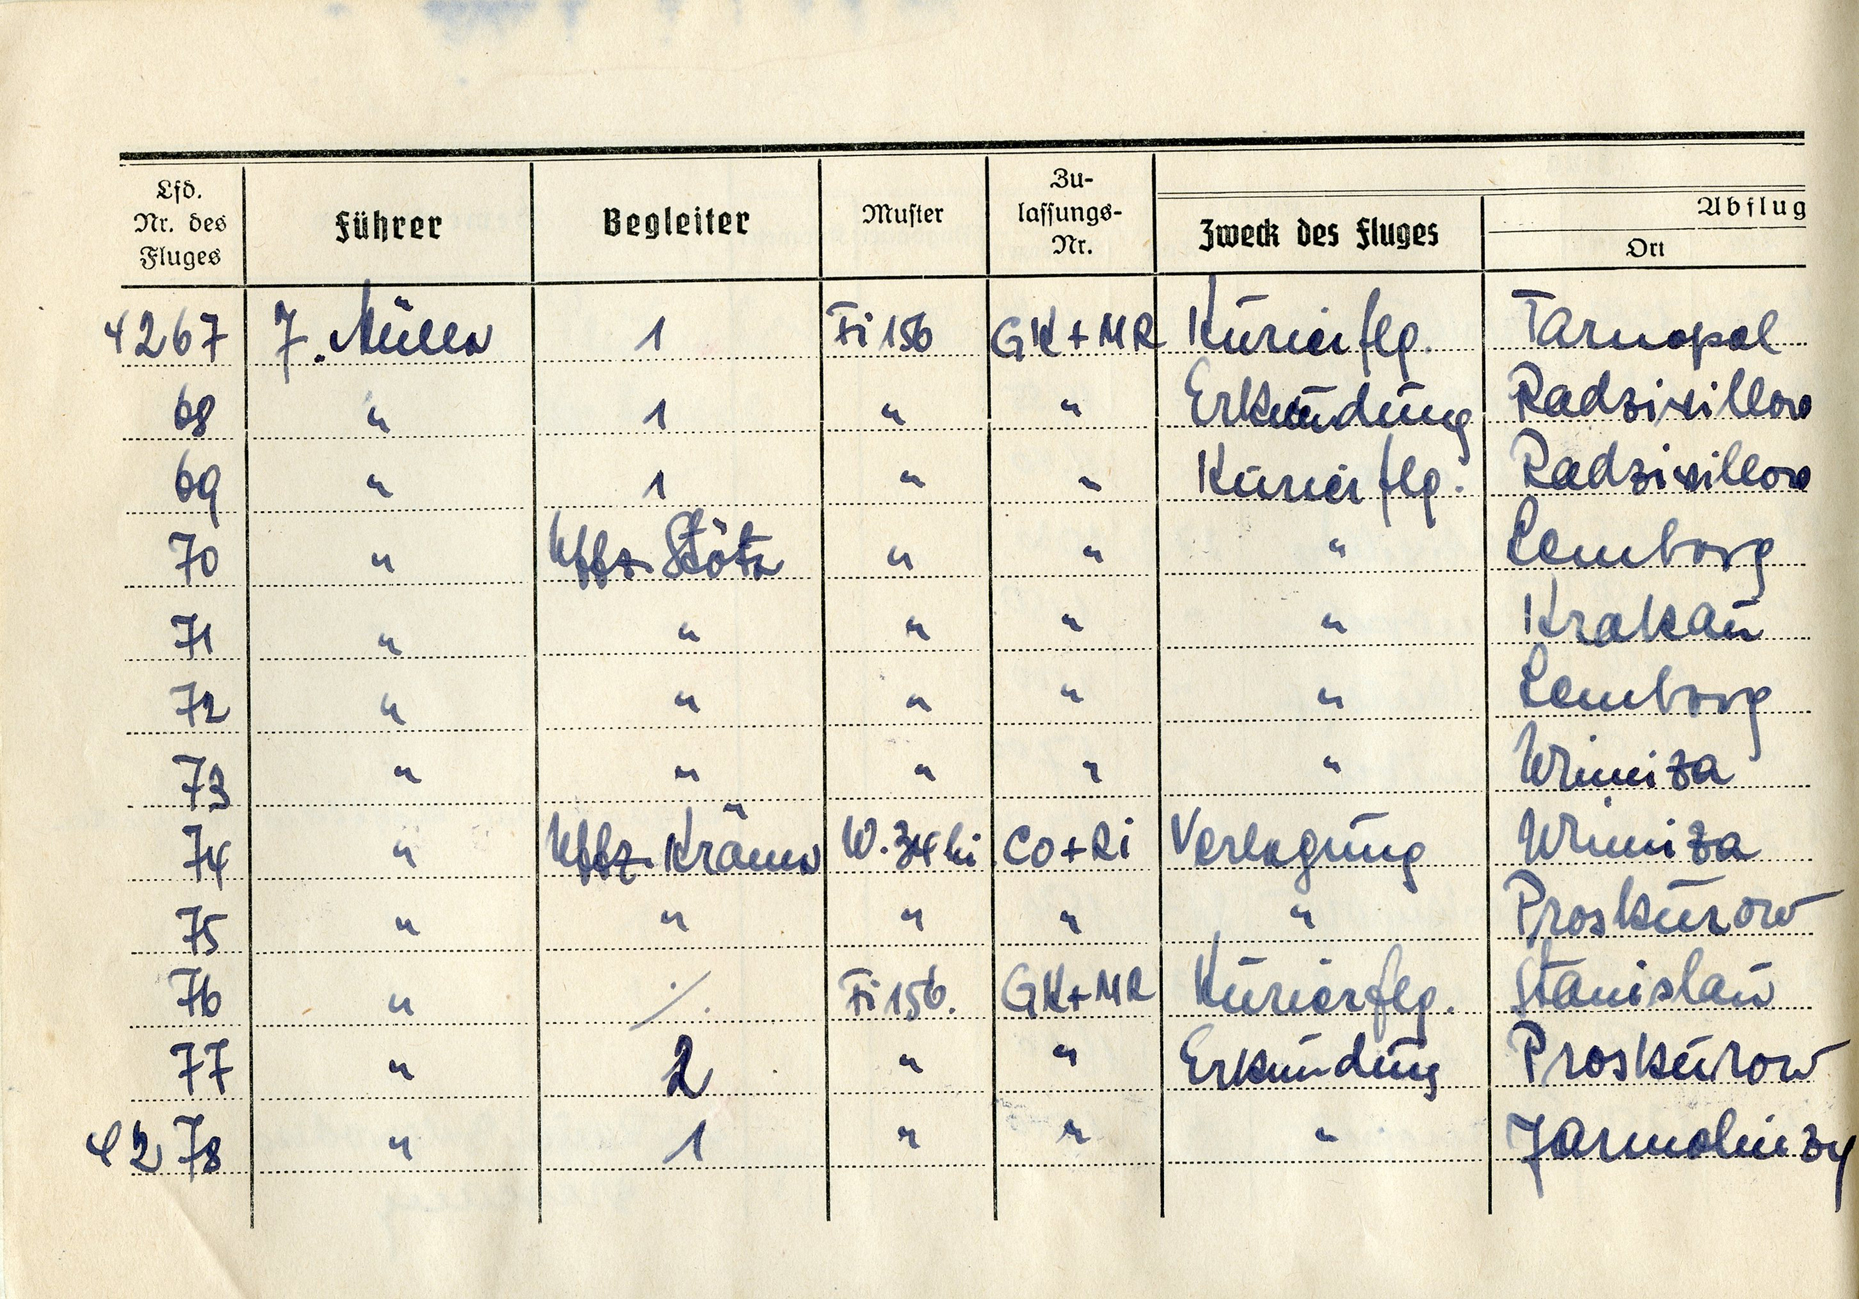 Lfd. Nr. des Fluges Führer Begleiter Muster Zulassungs-Nr. Zweck des Fluges Abflug Ort
4267 J. Müller 1 Fi 156 GK+MR Kurierflg. Tarnopol
68 " 1 " " Erkundung Radziwillow
69 " 1 " " Kurierflg. Radziwillow
70 " Uffz. Stötz " " " Lemberg
71 " " " " " Krakau
72 " " " " " Lemberg
73 " " " " " Winniza
74 " Uffz. Krämer W.34 hi CO+RI Verlegung Winniza
75 " " " " " Proskurow
76 " ./. Fi 156. GK+MR Kurierflg. Stanislau
77 " 2 " " Erkundung Proskurow
4278 " 1 " " " Jarmolinzy